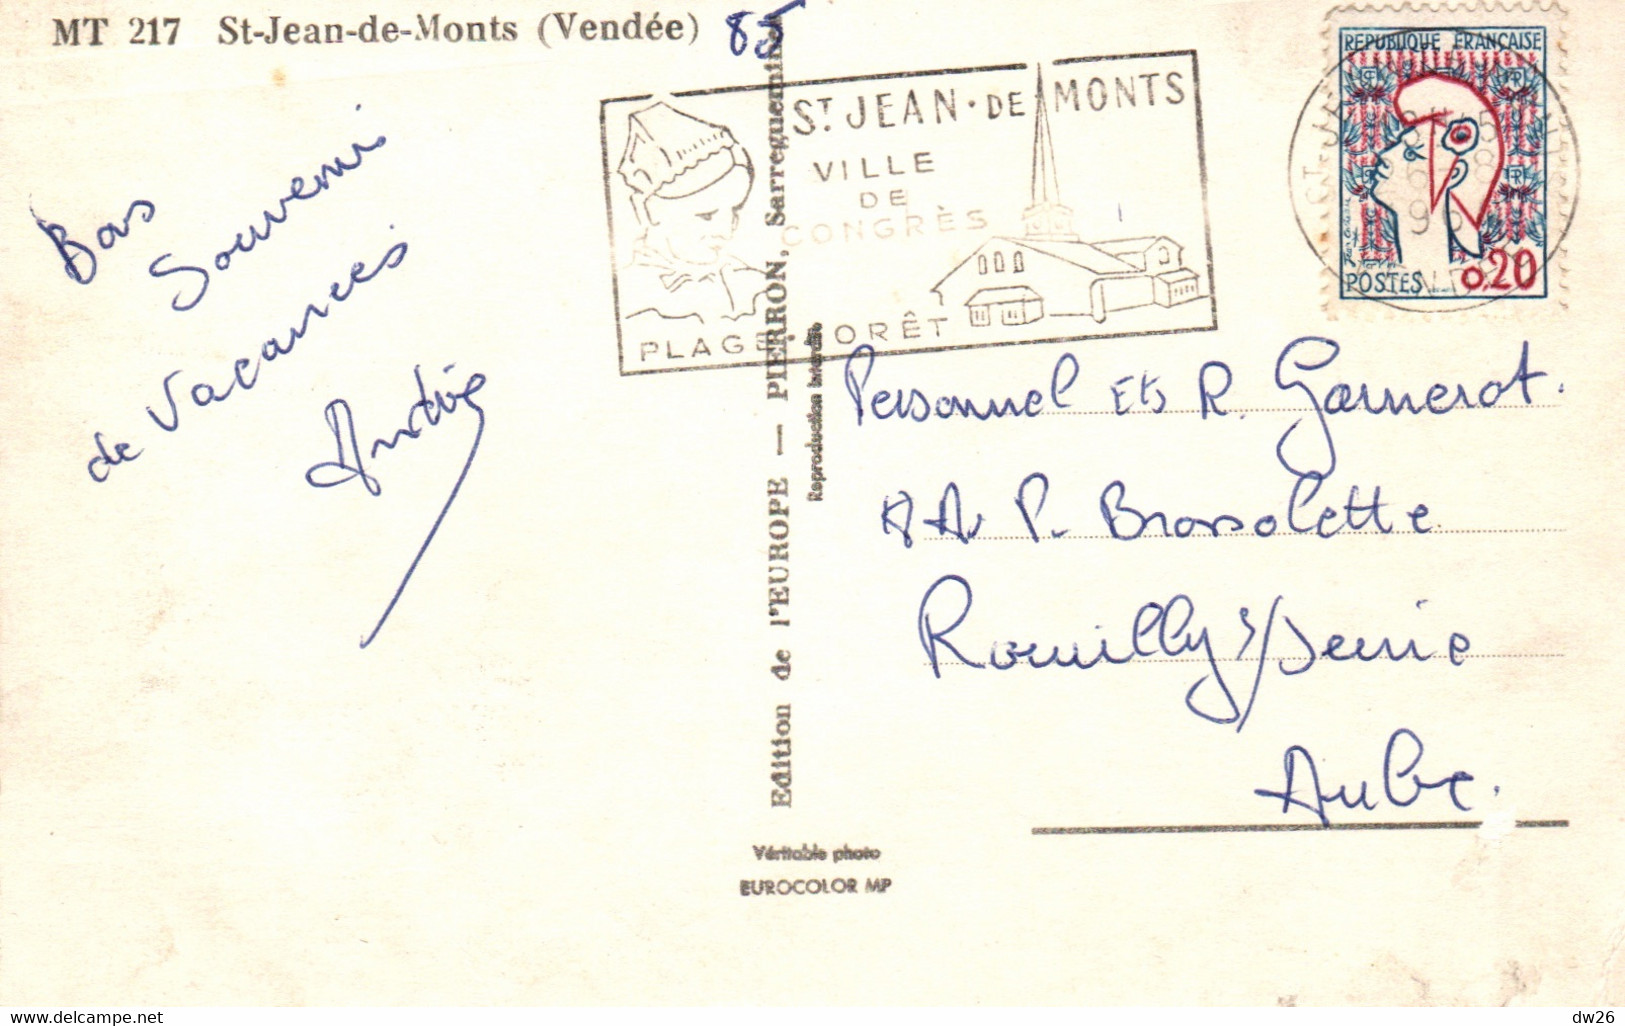 MT 217 St-Jean-de-Monts (Vendée) 85
ST JEAN·DE MONTS
VILLE
DE
CONGRÈS
PLAGE FORÊT
REPUBLIQUE FRANÇAISE
RF
POSTES 0,20
Bons
Souvenir
de Vacances
André
Personnel Ets R. Garnerot.
Av P. Brossolette
Romilly s/Seine
Aube.
Edition de l'EUROPE — PIERRON, Sarreguemines
Reproduction interdite
Véritable photo
EUROCOLOR MP
www.delcampe.net
dw26